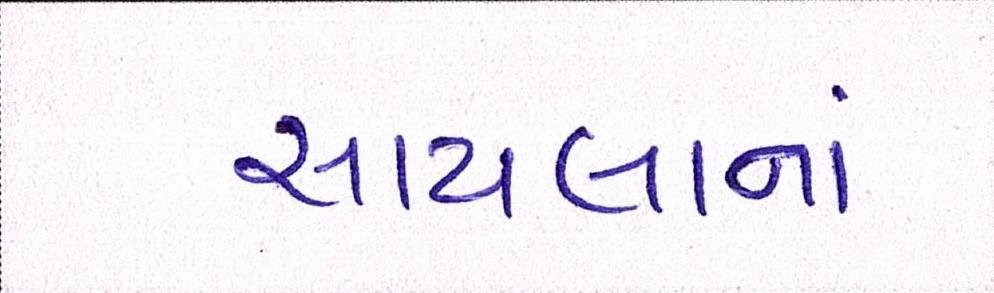 સાયલાનાં